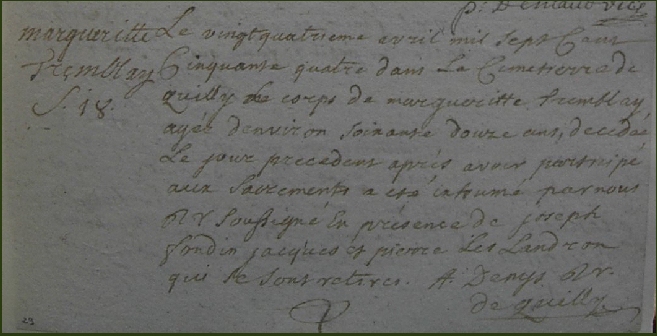 margueritte
Tremblay
S. 18.
Le vingtquatrieme avril mil sept Cent
Cinquante quatre dans Le Cemetierre de
Quilly le corps de margueritte tremblay,
agée denviron soixante douze ans, decedée
Le jour precedent aprés avoir participé
aux Sacrements a eté inhumé par nous
Soussigné En présence de joseph
jacques et pierre Les Landron
qui se sont retires. A. Denys
de Quilly.
23